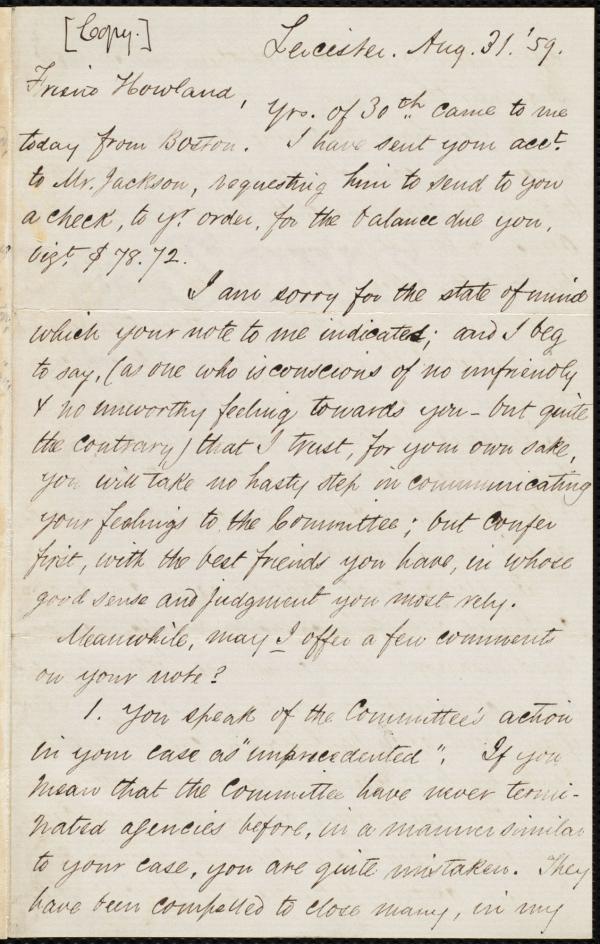 [Copy.]
Leicester. Aug. 31. '59.
Friend Howland,
Yrs. of 30th. came to me
today from Boston. I have sent your acct.
to Mr. Jackson, requesting him to send to you
a check, to yr. order, for the balance due you,
vizt. $78.72.
I am sorry for the state of mind
which your note to me indicates; and I beg
to say, (as one who is conscious of no unfriendly
& no unworthy feeling towards you - but quite
the contrary) that I trust, for your own sake,
you will take no hasty step in communicating
your feelings to the Committee; but confer
first, with the best friends you have, in whose
good sense and judgment you most rely.
Meanwhile, may I offer a few comments
on your note?
1. You speak of the Committee's action
in your case as "unprecedented". If you
mean that the Committee have never termi-
nated agencies before, in a manner similar
to your case, you are quite mistaken. They
have been compelled to close many, in my